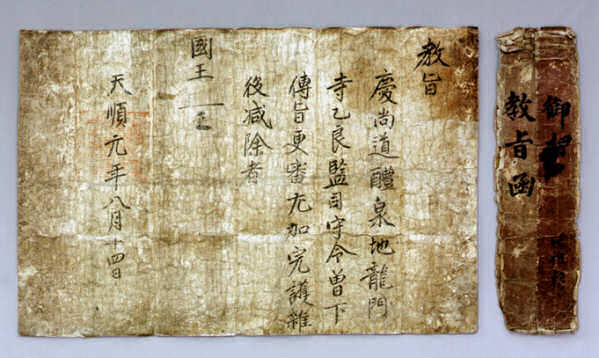 教旨
慶尚道醴泉地龍門
寺乙良監司守令曾下
傳旨更審尤加完護雜
役减除者
國王
天順元年八月十四日
御
教旨函